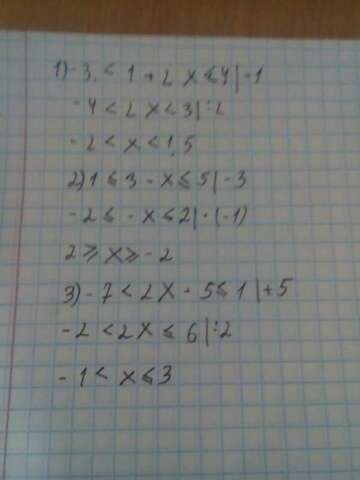 1) -3 < 1 + 2x ≤ 4 | -1
-4 < 2x ≤ 3 | :2
-2 < x < 1,5
2) 1 ≤ 3 - x ≤ 5 | -3
-2 ≤ -x ≤ 2 | · (-1)
2 ≥ x ≥ -2
3) -7 < 2x - 5 ≤ 1 | +5
-2 < 2x ≤ 6 | :2
-1 < x ≤ 3